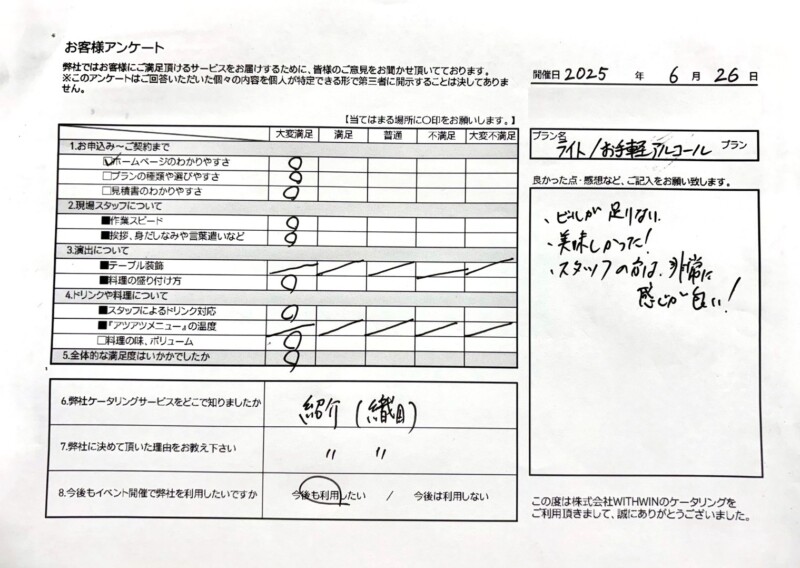 お客様アンケート
弊社ではお客様にご満足頂けるサービスをお届けするために、皆様のご意見をお聞かせ頂いております。
※このアンケートはご回答いただいた個々の内容を個人が特定できる形で第三者に開示することは決してありま
せん。
開催日 2025 年 6 月 26 日
【当てはまる場所に○印をお願いします。】
大変満足 満足 普通 不満足 大変不満足
プラン名
ライト/お手軽アルコール プラン
1.お申込み～ご契約まで
ホームページのわかりやすさ
□プランの種類や選びやすさ
□見積書のわかりやすさ
2.現場スタッフについて
■作業スピード
■挨拶、身だしなみや言葉遣いなど
3.演出について
■テーブル装飾
■料理の盛り付け方
4.ドリンクや料理について
■スタッフによるドリンク対応
■『アツアツメニュー』の温度
□料理の味、ボリューム
5.全体的な満足度はいかかでしたか
良かった点・感想など、ご記入をお願い致します。
、ビルが足りない
、美味しかった!
、スタッフの方は、非常に
感じが良い!
6.弊社ケータリングサービスをどこで知りましたか
紹介(織田)
7.弊社に決めて頂いた理由をお教え下さい
〃 〃
8.今後もイベント開催で弊社を利用したいですか
今後も利用したい / 今後は利用しない
この度は株式会社WITHWINのケータリングを
ご利用頂きまして、誠にありがとうございました。